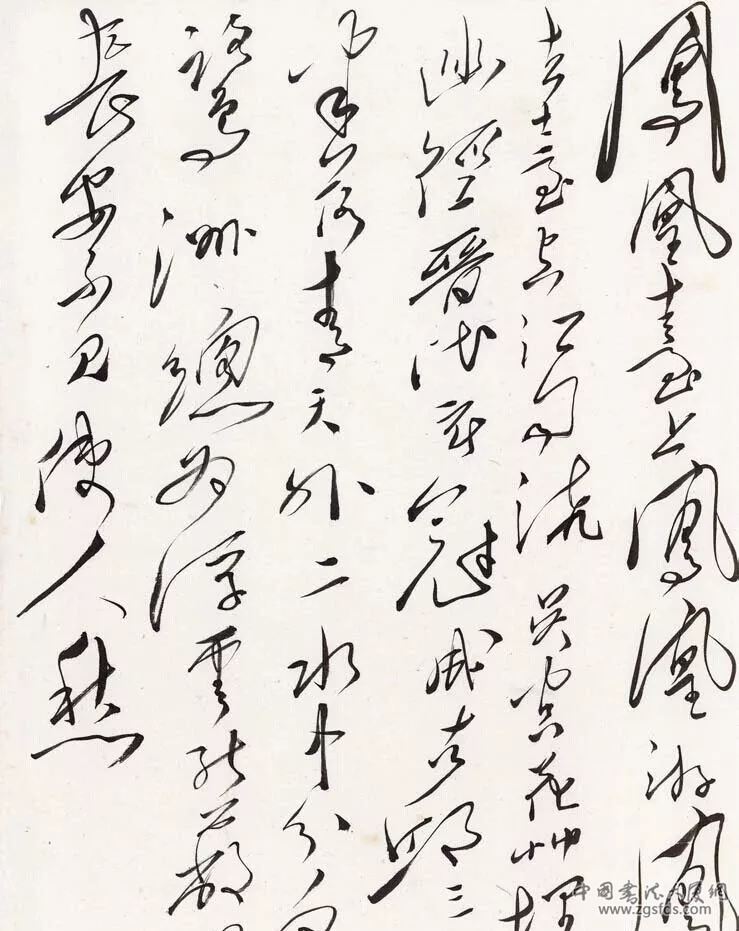 鳳凰臺上鳳凰游鳳
去臺空江自流吳宮花艸埋
幽徑晉代衣冠成古邱三
山半落青天外二水中分白
鷺洲總为浮雲能蔽
長安不見使人愁
中國書法大厦網
www.zgsfds.com